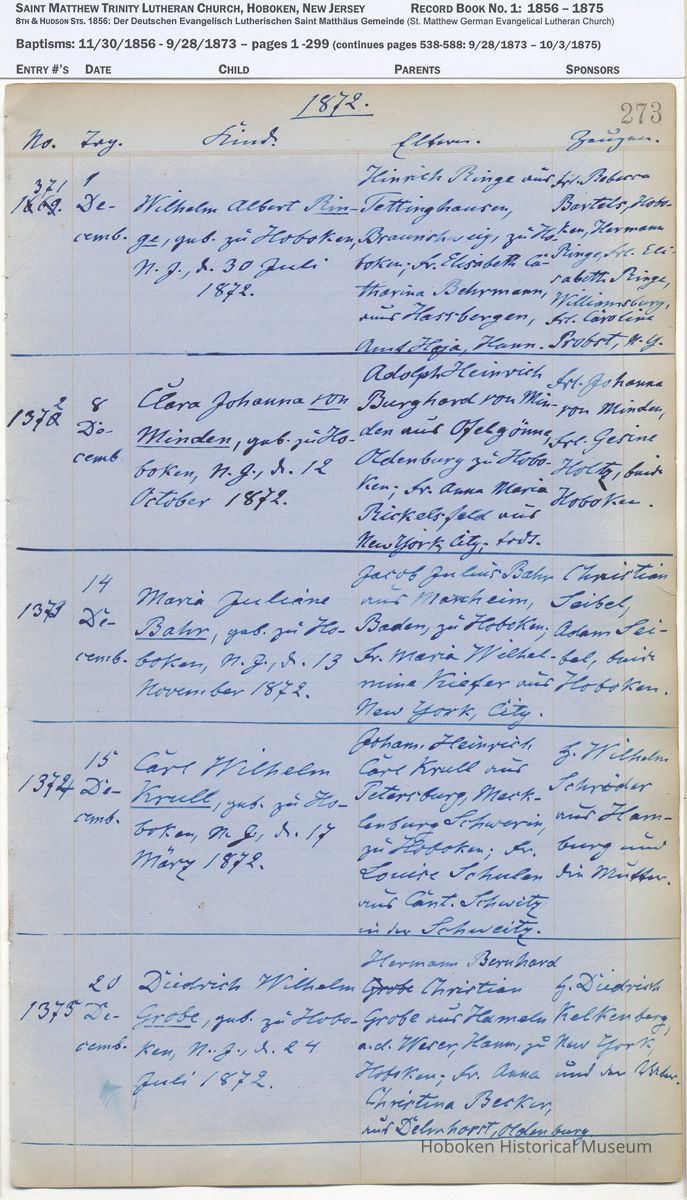 SAINT MATTHEW TRINITY LUTHERAN CHURCH, HOBOKEN, NEW JERSEY RECORD BOOK NO. 1: 1856 – 1875
8TH & HUDSON STS. 1856: Der Deutschen Evangelisch Lutherischen Saint Matthäus Gemeinde (St. Matthew German Evangelical Lutheran Church)
Baptisms: 11/30/1856 - 9/28/1873 – pages 1 -299 (continues pages 538-588: 9/28/1873 – 10/3/1875)
ENTRY #'S DATE CHILD PARENTS SPONSORS
1872.
273
No. Tag. Kind. Eltern. Zeugen.
371
1
De-
cemb.
Wilhelm Albert Rin-
ge, geb. zu Hoboken,
N. J., d. 30 Juli
1872.
Hinrich Ringe aus
Tettinghausen,
Braunschweig, zu Ho-
boken; fr. Elisabeth Ca-
tharina Behrmann,
aus Hassbergen,
Amt Hoja, Hann.
frl. Rebecca
Bartels, Hobo-
ken, Hermann
Ringe, frl. Eli-
sabeth Ringe,
Williamsburg,
frl. Caroline
Probst, N. Y.
1372
8
De-
cemb.
Clara Johanna von
Minden, geb. zu Ho-
boken, N. J., d. 12
October 1872.
Adolph Heinrich
Burghard von Min-
den aus Ofelgönne,
Oldenburg zu Hobo-
ken; fr. Anna Maria
Rickelsfeld aus
New York, City,
frl. Johanna
von Minden,
frl. Gesine
Holtz, beide
Hoboken.
1373
14
De-
cemb.
Maria Juliane
Bahr, geb. zu Ho-
boken, N. J., d. 13
November 1872.
Jacob Julius Bahr
aus Manheim,
Baden, zu Hoboken;
fr. Maria Wilhel-
mine Kiefer aus
New York, City.
Christian
Seibel,
Adam Sei-
bel, beide
Hoboken.
1374
15
De-
cemb.
Carl Wilhelm
Krull, geb. zu Ho-
boken, N. J., d. 17
März 1872.
Johann Heinrich
Carl Krull aus
Petersburg, Meck-
lenburg Schwerin,
zu Hoboken; fr.
Louise Schulen
aus Cant. Schwitz
in der Schweitz.
H. Wilhelm
Schröder
aus Ham-
burg und
die Mutter.
1375
20
De-
cemb.
Diedrich Wilhelm
Grobe, geb. zu Hobo-
ken, N. J., d. 24
Juli 1872.
Hermann Bernhard
Grobe Christian
Grobe aus Hameln
a.d. Weser, Hann, zu
Hoboken; fr. Anna
Christina Becker,
aus Delmhorst, Oldenburg
H. Diedrich
Kelkenberg,
New York
und der Vater.
Hoboken Historical Museum